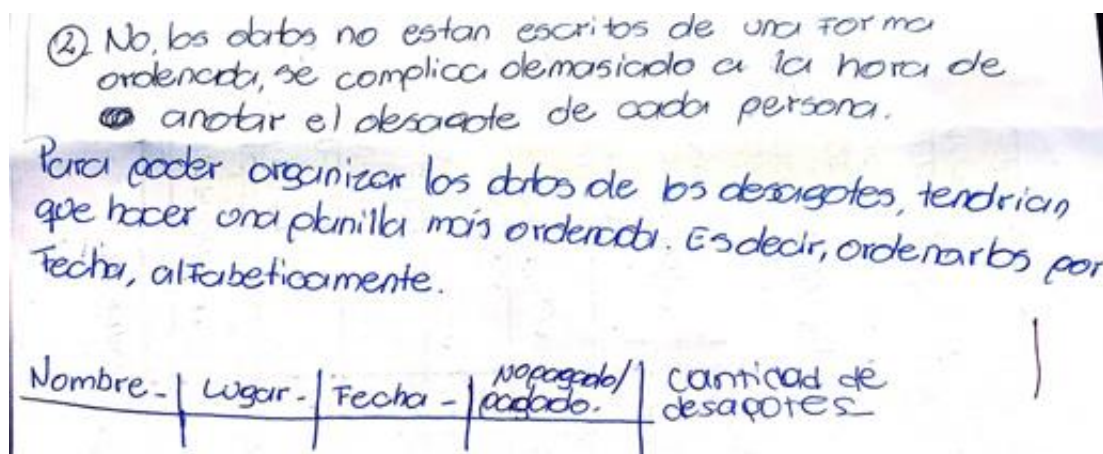 ② No, los datos no estan escritos de una forma
ordenada, se complica demasiado a la hora de
anotar el desagote de cada persona.
Para poder organizar los datos de los desagotes, tendrian
que hacer una planilla más ordenada. Es decir, ordenarlos por
Fecha, alfabeticamente.
Nombre - | Lugar - | Fecha - | No pagado/ | cantidad de
pagado. | desagotes